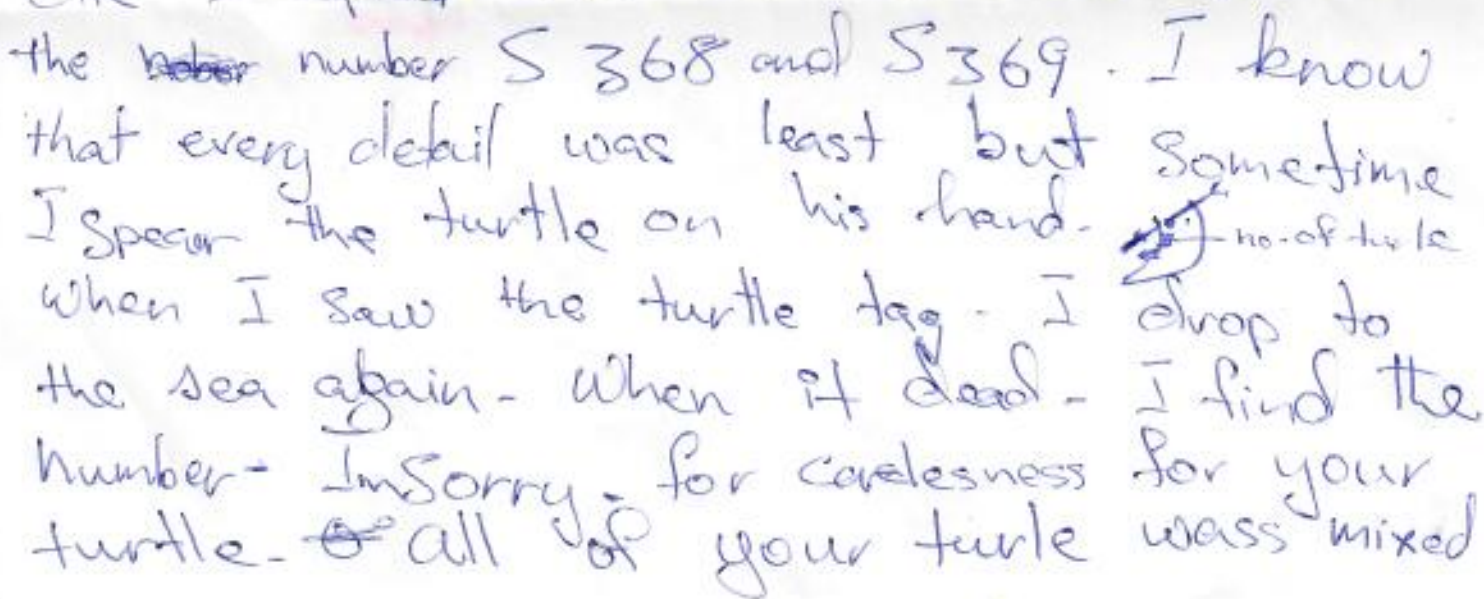 the number S 368 and S 369. I know
that every detail was least but sometime
I Spear the turtle on his hand.
no. of turle
when I saw the turtle tag. I drop to
the sea again - When it dead - I find the
number - Im Sorry. for carelesness for your
turtle - all of your turle wass mixed